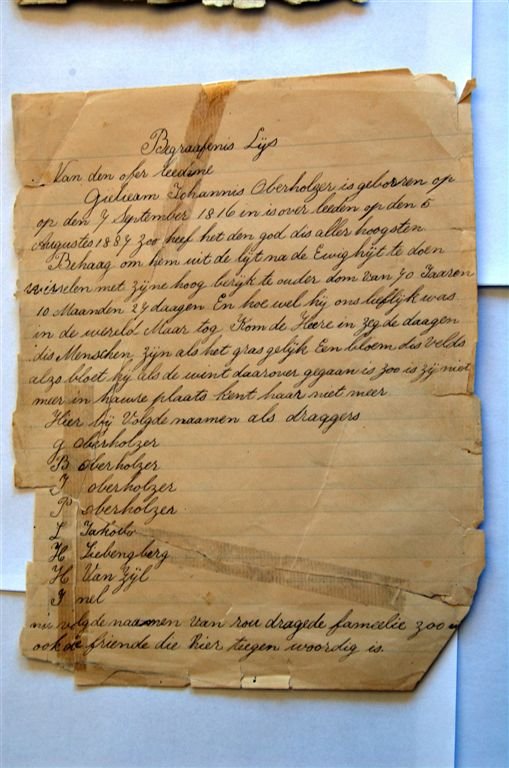 Begraafenis Lijs
Van den ofer leedine
Gulieam Johannis Oberholzer is geborren op
op den 7 September 1816 in is over leeden op den 5
Augustes 1887 zoo heef het den god dis aller hoogsten
Behaag om hem uit de tijt na de Ewig hijt te doen
wisselen met zijne hoog berijk te ouder dom van 70 Jaaren
10 Maanden 27 daagen En hoe wel hij ons lieflijk was
in de wereld Maar tog Kom de Heere in zeg de daagen
dis Menschen zijn als het gras gelijk Een bloem dis velds
alzo bloet hij als de wint daarover gegaan is zoo is zij niet
meer in hauwre plaats kent haar niet meer
Hier bij Volgde naamen als draggers
G oberholzer
B oberholzer
J oberholzer
P oberholzer
L Jakobs
H Liebengberg
H Van Zijl
J nel
nu volgde naamen van rou dragede fameelie zoo
ook de friende die hier teegen woordig is.